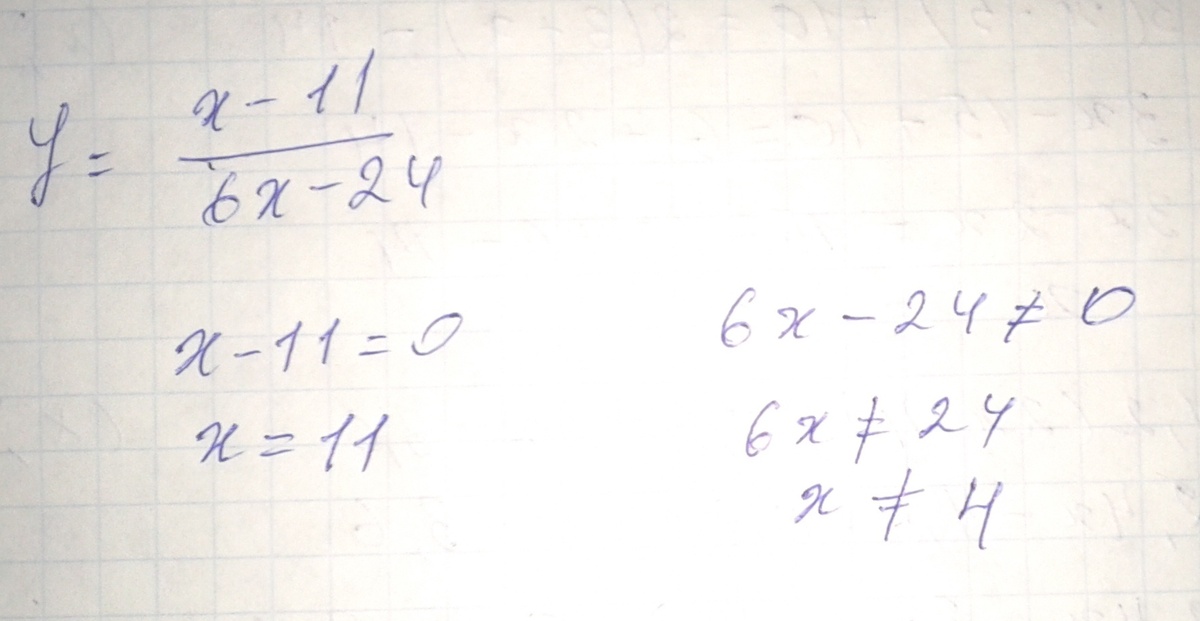 y = x - 11 / 6x - 24
x - 11 = 0
x = 11
6x - 24 ≠ 0
6x ≠ 24
x ≠ 4